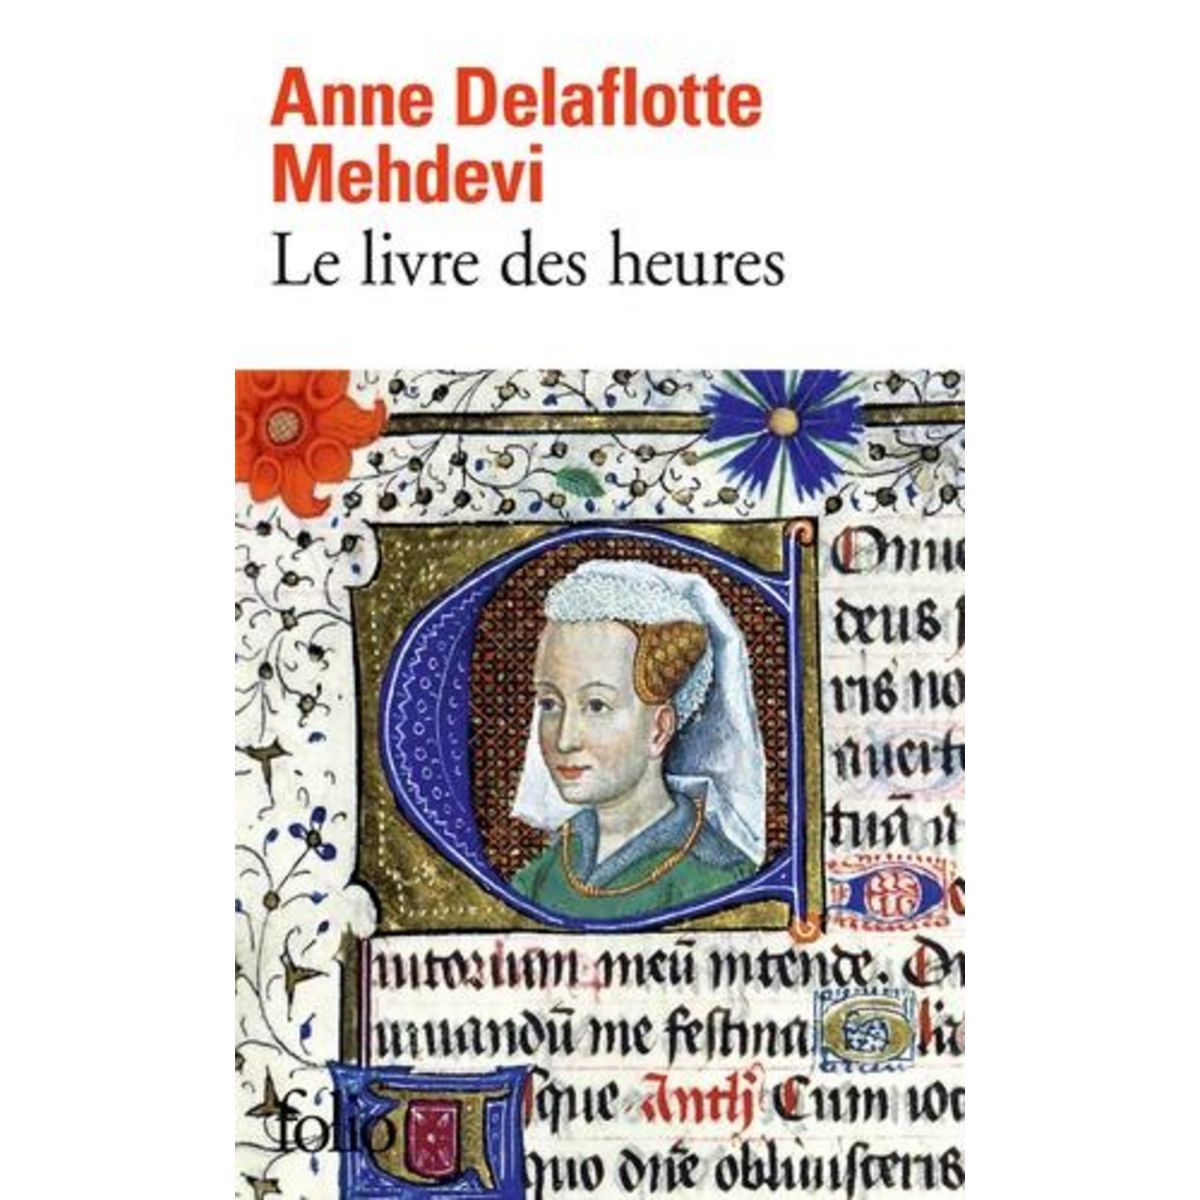 Anne Delaflotte
Mehdevi
Le livre des heures
deus
ris no
auert
tuā
iutorium meū intende.
iuuandū me festina
sque Anth
Cum uoc
quo dn̄e obliuisceris
folio